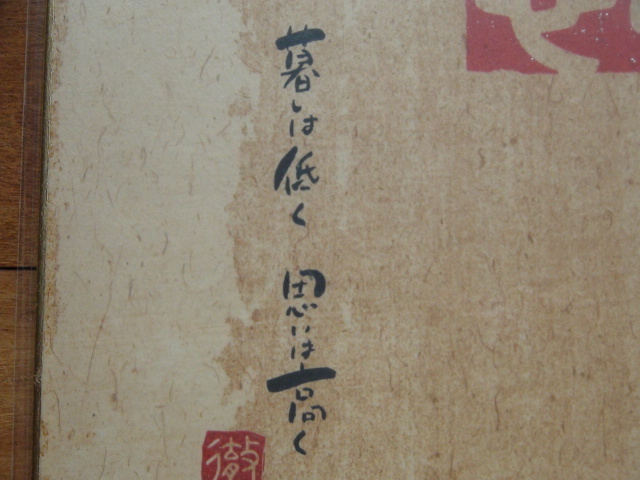 暮しは低く 思いは高く
徹